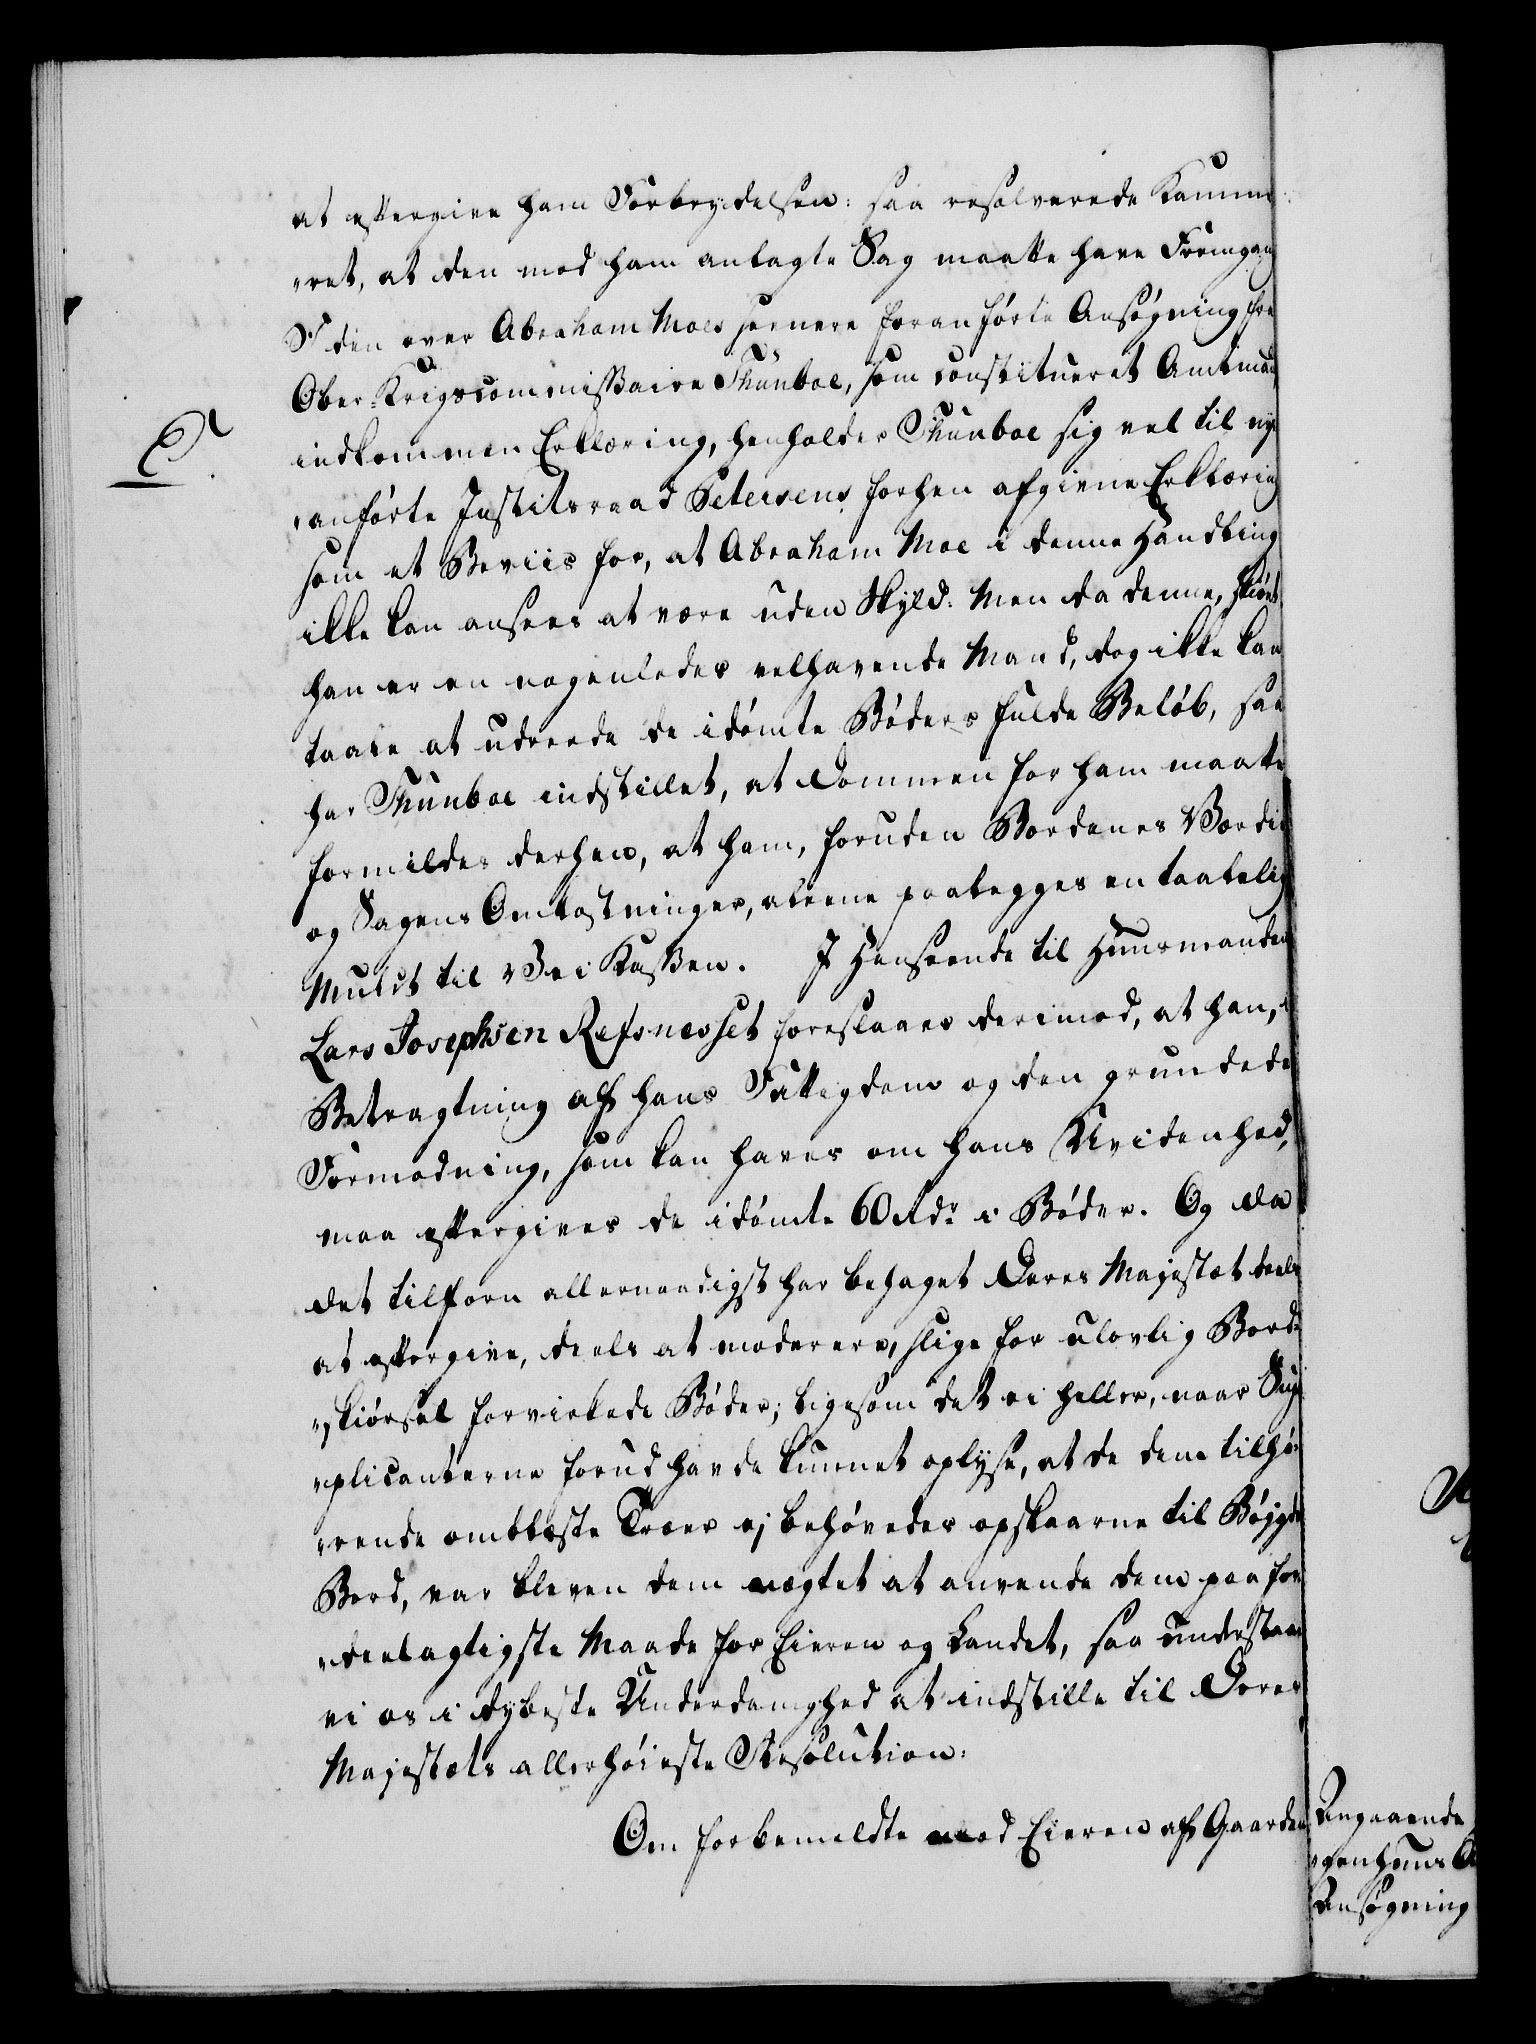 at eftergive ham Forbrydelsen: saa resolverede Kamme-
"ret, at den mod ham anlagte Sag maatte have Fremgang
I den over Abraham Moes senere foranførte Ansøgning fra
Ober-Krigscommissaire Thunboe, som constitueret Amtmand,
indkommen Erklæring, henholder Thunboe sig vel til ny-
"anførte Justitsraad Petersens forhen afgivne Erklæring
som et Beviis for, at Abraham Moe i denne Handling
ikke kan ansees at være uden Skyld: Men da denne, skiønt
han er en nogenledes velhavende Mand, dog ikke kan
taale at udreede de idømte Bøders fulde Beløb, saa
har Thunboe indstillet, at Dommen for ham maatte
formildes derhen, at ham, foruden Bordenes Værdie
og Sagens Omkostninger, alleene paalegges en taalelig
Mulct til Vei Kassen. I Henseende til Huusmanden
Lars Josephsen Refsnesset foreslaaes derimod, at han, i
Betragtning af hans Fattigdom og den grundede
Formodning, som kan haves om hans Uvidenhed,
maa eftergives de idømte 60 Rdr i Bøder. Og da
det tilforn allernaadigst har behaget Deres Majestæt deels
at eftergive, deels at moderere, slige for ulovlig Bord-
"skiørsel forvirkede Bøder; ligesom det ei heller, naar Sup-
"plicanterne forud havde kunnet oplyse, at de dem tilhø-
"rende omblæste Træer ej behøvedes opskaarne til Bøjgde
Bord, var bleven dem nægtet at anvende dem paa for-
"deelagtigste Maade for Eieren og Landet, saa understaae
vi os i dybeste Underdanighed at indstille til Deres
Majestæts allerhøieste Resolution:
Om forbemeldte mod Eieren af Gaarden
Angaaende
Ansøgning